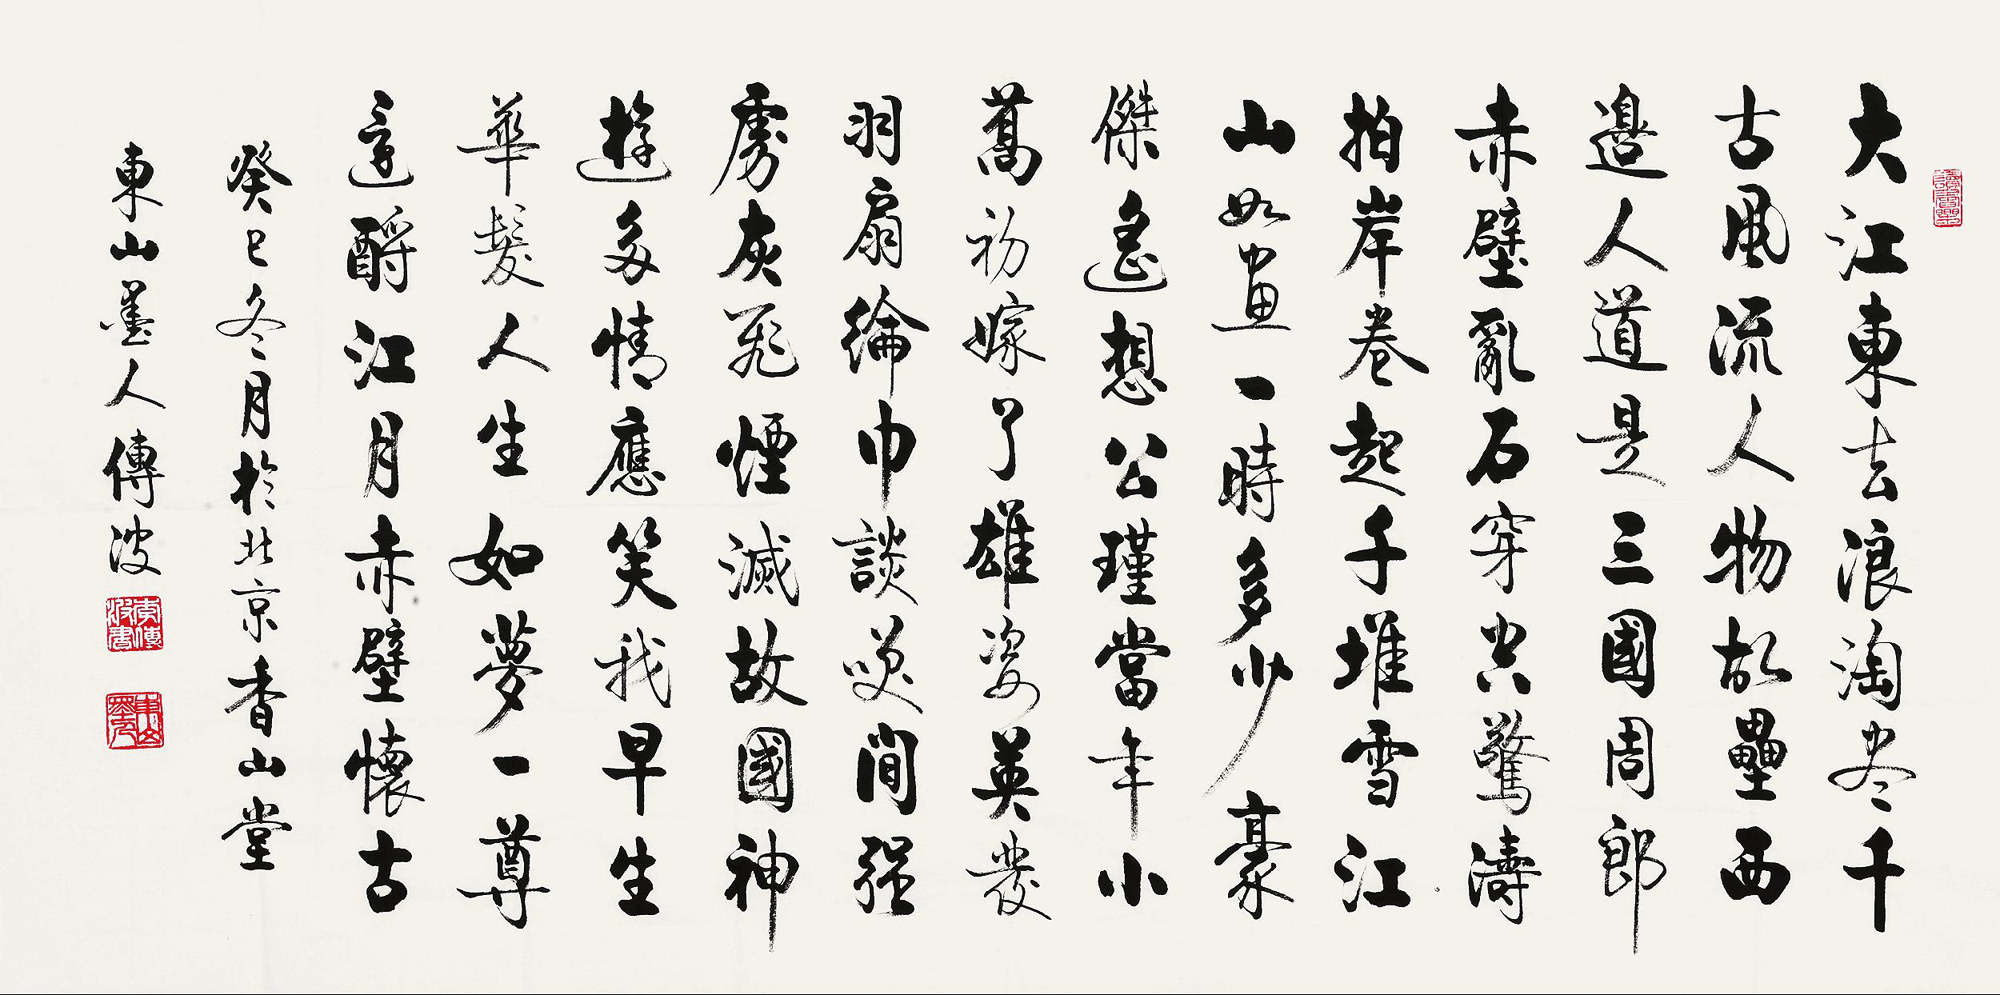 大江東去浪淘盡千
古風流人物故壘西
邊人道是三國周郎
赤壁亂石穿空驚濤
拍岸卷起千堆雪江
山如畫一時多少豪
傑遙想公瑾當年小
喬初嫁了雄姿英發
羽扇綸巾談笑間強
虜灰飛煙滅故國神
遊多情應笑我早生
華髮人生如夢一尊
還酹江月赤壁懷古
癸巳冬月於北京香山堂
東山墨人傳波